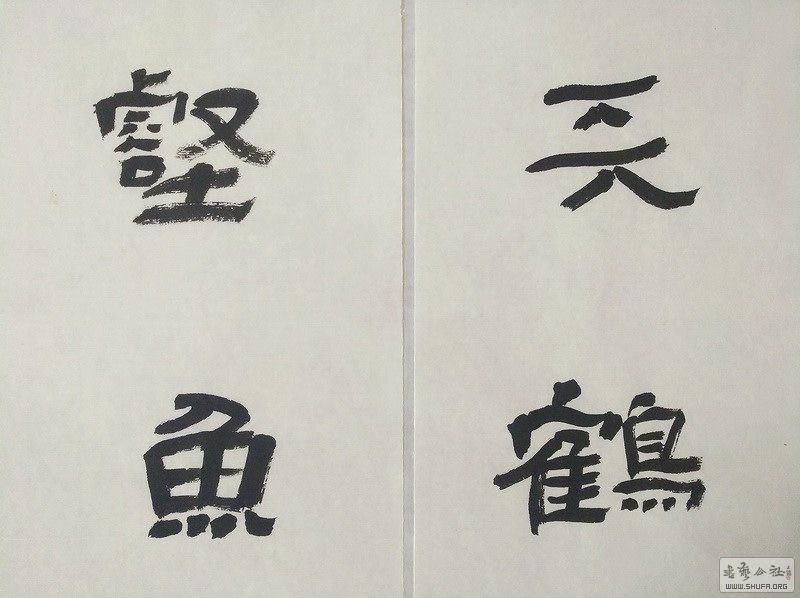 天鶴
壑魚
書藝公社
WWW.SHUFA.ORG